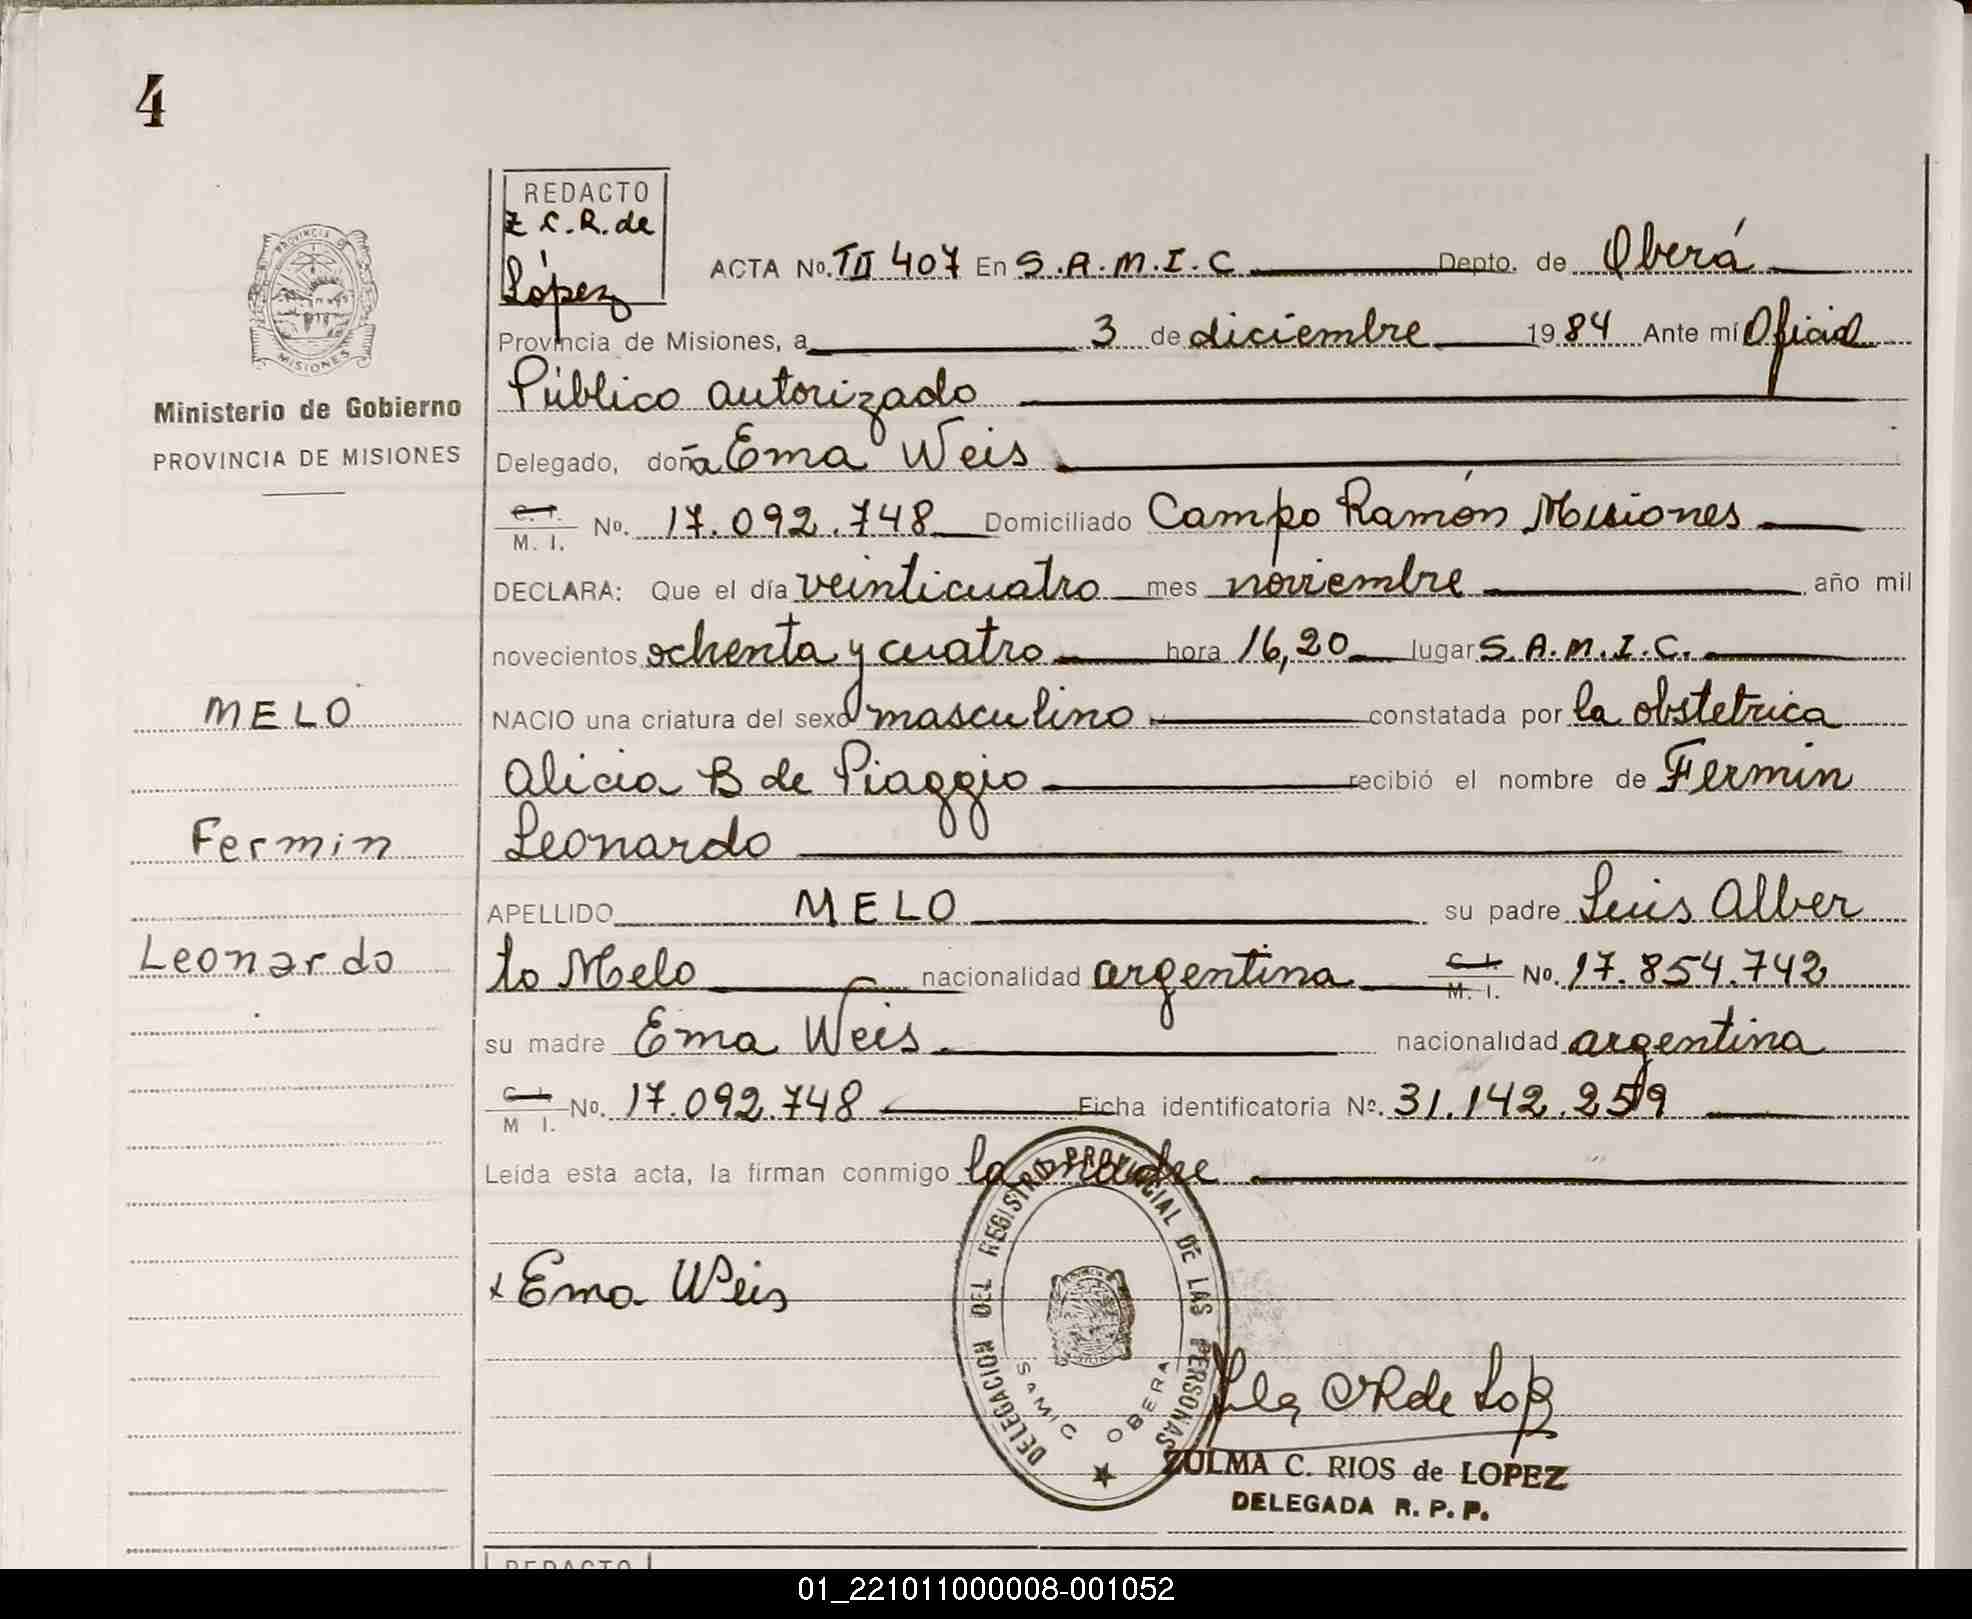 4
REDACTO
Z C. R. de
López
ACTA No. TII 407 En S.A.M.I.C Depto. de Oberá
Provincia de Misiones, a 3 de diciembre 1984 Ante mí Oficial
Público autorizado
Delegado, doña Ema Weis
C. I. M. I. No. 17.092.748 Domiciliado Campo Ramón Misiones
DECLARA: Que el día veinticuatro mes noviembre año mil
novecientos ochenta y cuatro hora 16,20 lugar S.A.M.I.C.
NACIO una criatura del sexo masculino constatada por la obstetrica
Alicia B de Piaggio recibió el nombre de Fermin
Leonardo
APELLIDO MELO su padre Luis Alber
to Melo nacionalidad argentina C. I. M. I. No. 17.854.742
su madre Ema Weis nacionalidad argentina
C. I. M I. No. 17.092.748 Ficha identificatoria Nº. 31.142.259
Leída esta acta, la firman conmigo la madre
x Ema Weis
PROVINCIA DE
MISIONES
Ministerio de Gobierno
PROVINCIA DE MISIONES
MELO
Fermin
Leonardo
DELEGACION DEL REGISTRO PROVINCIAL DE LAS PERSONAS
SAMIC OBERA
ZULMA C. RIOS de LOPEZ
DELEGADA R. P. P.
REDACTO
01_221011000008-001052